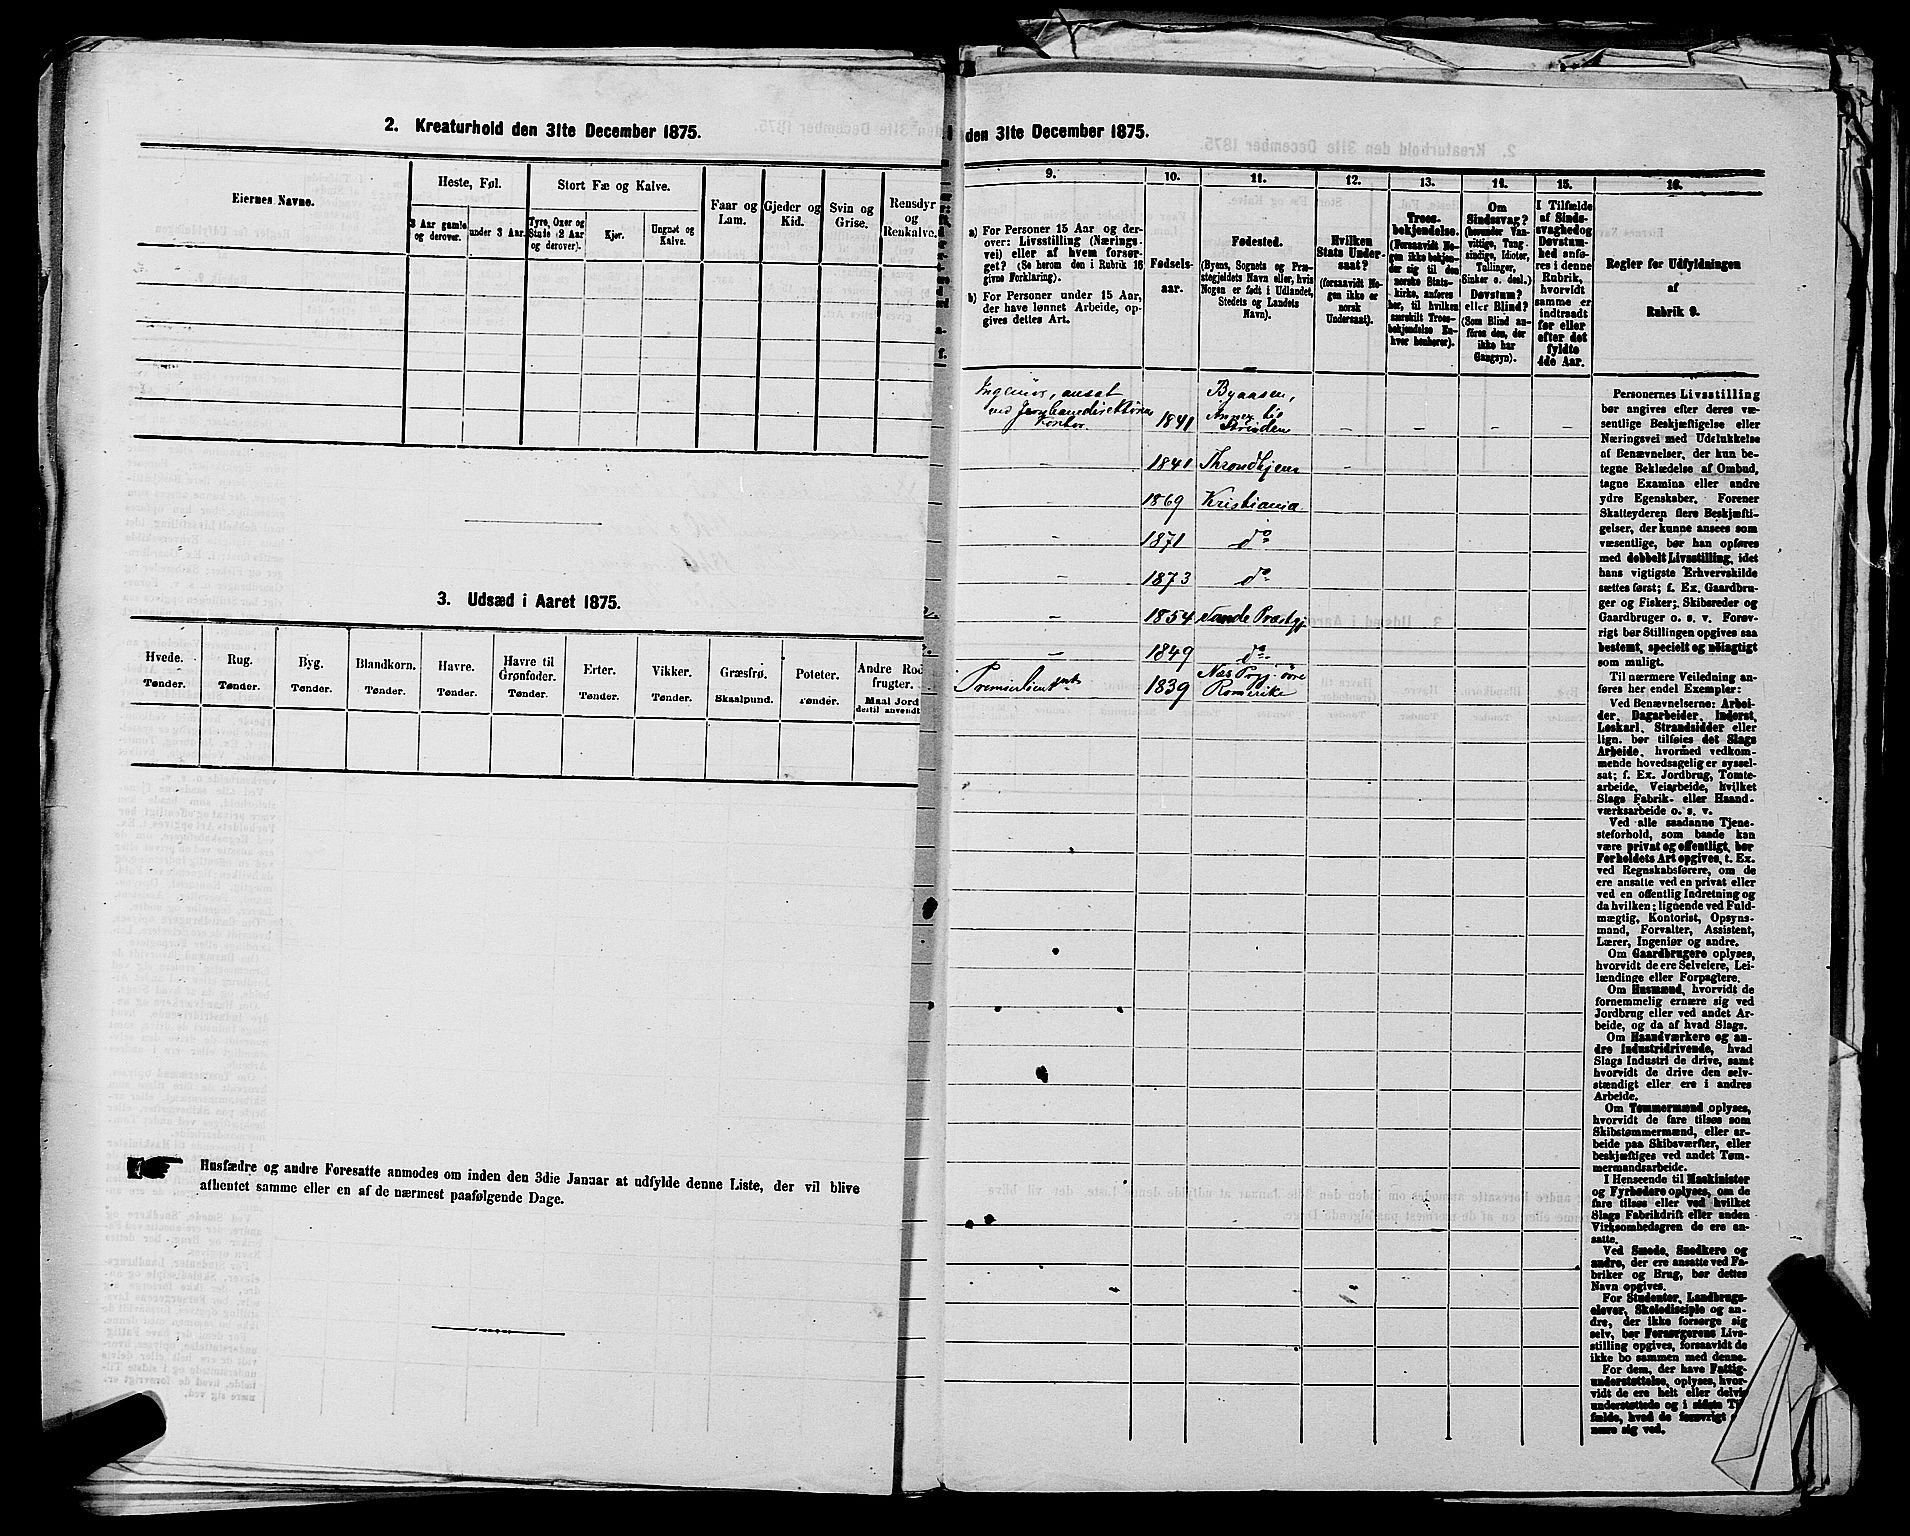 2. Kreaturhold den 31te December 1875.
Eiernes Navne.
Heste, Føl.
Stort Fæ og Kalve.
3 Aar gamle og derover.
under 3 Aar.
Tyre, Oxer og Stude (2 Aar og derover).
Kjør.
Ungnøt og Kalve.
Faar og Lam.
Gjeder og Kid.
Svin og Grise.
Rensdyr og Renkalve.
3. Udsæd i Aaret 1875.
Hvede. Tønder.
Rug. Tønder.
Byg. Tønder.
Blandkorn. Tønder.
Havre. Tønder.
Havre til Grønfoder. Tønder.
Erter. Tønder.
Vikker. Tønder.
Græsfrø. Skaalpund.
Poteter. Tønder.
Andre Rodfrugter.
Maal Jord
dertil anvendt
Husfædre og andre Foresatte anmodes om inden den 3die Januar at udfylde denne Liste, der vil blive
afhentet samme eller en af de nærmest paafølgende Dage.
den 31te December 1875.
9. 10. 11. 12. 13. 14. 15. 16.
a) For Personer 15 Aar og der-
over: Livsstilling (Nærings-
vei) eller af hvem forsør-
get? (Se herom den i Rubrik 16
givne Forklaring).
b) For Personer under 15 Aar,
der have lønnet Arbeide, op-
gives dettes Art.
Fødsels-
aar.
Fødested.
(Byens, Sognets og Præ-
stegjeldets Navn eller, hvis
Nogen er født i Udlandet,
Stedets og Landets
Navn).
Hvilken
Stats Under-
saat?
(forsaavidt No-
gen ikke er
norsk
Undersaat).
Troes-
bekjendelse.
(Forsaavidt No-
gen ikke bekjen-
der sig til den
norske Stats-
kirke, anføres
her, til hvilken
særskilt Troes-
bekjendelse En-
hver henhører).
Om
Sindssvag?
(herunder Van-
vittige, Tung-
sindige, Idioter,
Tullinger,
Sinker o. desl.)
Døvstum?
eller Blind?
(Som Blind an-
føres den, der
ikke har
Gangsyn).
I Tilfælde
af Sinds-
svaghed og
Døvstum-
hed anfø-
res i denne
Rubrik,
hvorvidt
samme er
indtraadt
før eller
efter det
fyldte
4de Aar.
Regler for Udfyldningen
af
Rubrik 9.
Ingeniør, ansat
ved Jernbanedirektørens
Kontor. 1841 Byaasen, Annex til Strinden – – – –
– 1841 Throndhjem –
– 1869 Kristiania
– 1871 do
– 1873 do
– 1854 Sande Præstgj
– 1849 do
Premierlieutnant 1839 Næs Prgj. øvre Romerike
Personernes Livsstilling
bør angives efter deres væ-
sentlige Beskjæftigelse eller
Næringsvei med Udelukkelse
af Benævnelser, der kun be-
tegne Beklædelse af Ombud,
tagne Examina eller andre
ydre Egenskaber. Forener
Skatteyderen flere Beskjæfti-
gelser, der kunne ansees som
væsentlige, bør han opføres
med dobbelt Livsstilling, idet
hans vigtigste Erhvervskilde
sættes først; f. Ex. Gaardbru-
ger og Fisker; Skibsreder og
Gaardbruger o. s. v. Forøv-
rigt bør Stillingen opgives saa
bestemt, specielt og nøiagtigt
som muligt.
Til nærmere Veiledning an-
føres her endel Exempler:
Ved Benævnelserne: Arbei-
der, Dagarbeider, Inderst,
Løskarl, Strandsidder eller
lign. bør tilføies det Slags
Arbeide, hvormed vedkom-
mende hovedsagelig er syssel-
sat; f. Ex. Jordbrug, Tomte-
arbeide, Veiarbeide, hvilket
Slags Fabrik- eller Haand-
værksarbeide o. s. v.
Ved alle saadanne Tjene-
steforhold, som baade kan
være privat og offentligt, bør
Forholdets Art opgives, t. Ex.
ved Regnskabsførere, om de
ere ansatte ved en privat eller
ved en offentlig Indretning og
da hvilken; lignende ved Fuld-
mægtig, Kontorist, Opsyns-
mand, Forvalter, Assistent,
Lærer, Ingeniør og andre.
Om Gaardbrugere oplyses,
hvorvidt de ere Selveiere, Lei-
lændinge eller Forpagtere.
Om Husmænd, hvorvidt de
fornemmelig ernære sig ved
Jordbrug eller ved andet Ar-
beide, og da af hvad Slags.
Om Haandværkere og an-
dre Industridrivende, hvad
Slags Industri de drive, samt
hvorvidt de drive den selv-
stændigt eller ere i andres
Arbeide.
Om Tømmermænd oplyses,
hvorvidt de fare tilsøs som
Skibstømmermænd, eller ar-
beide paa Skibsværfter, eller
beskjæftiges ved andet Tøm-
mermandsarbeide.
I Henseende til Maskinister
og Fyrbødere oplyses, om de
fare tilsøs eller ved hvilket
Slags Fabrikdrift eller anden
Virksomhedsgren de ere an-
satte.
Ved Smede, Snedkere og
andre, der ere ansatte ved Fa-
briker og Brug, bør dettes
Navn opgives.
For Studenter, Landbrugs-
elever, Skoledisciple og an-
dre, der ikke forsørge sig
selv, bør Forsørgerens Livs-
stilling opgives, forsaavidt de
ikke bo sammen med denne.
For dem, der have Fattig-
understøttelse, oplyses, hvor-
vidt de ere helt eller delvis
understøttede og i sidste
fælde, hvad de forøvrigt
nære sig ved.